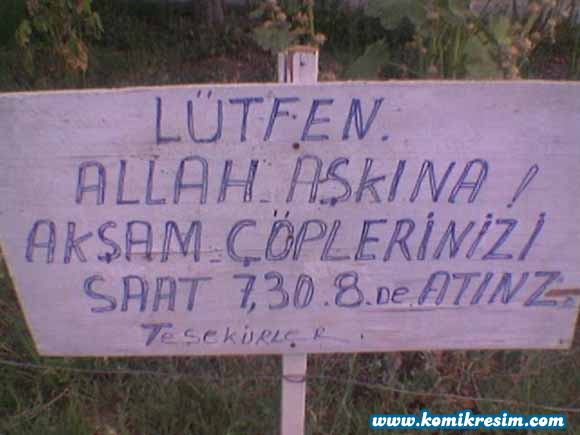 LÜTFEN.
ALLAH AŞKINA!
AKŞAM ÇÖPLERİNİZİ
SAAT 7,30.8.DE ATINZ.
TEŞEKÜRLER.
www.komikresim.com